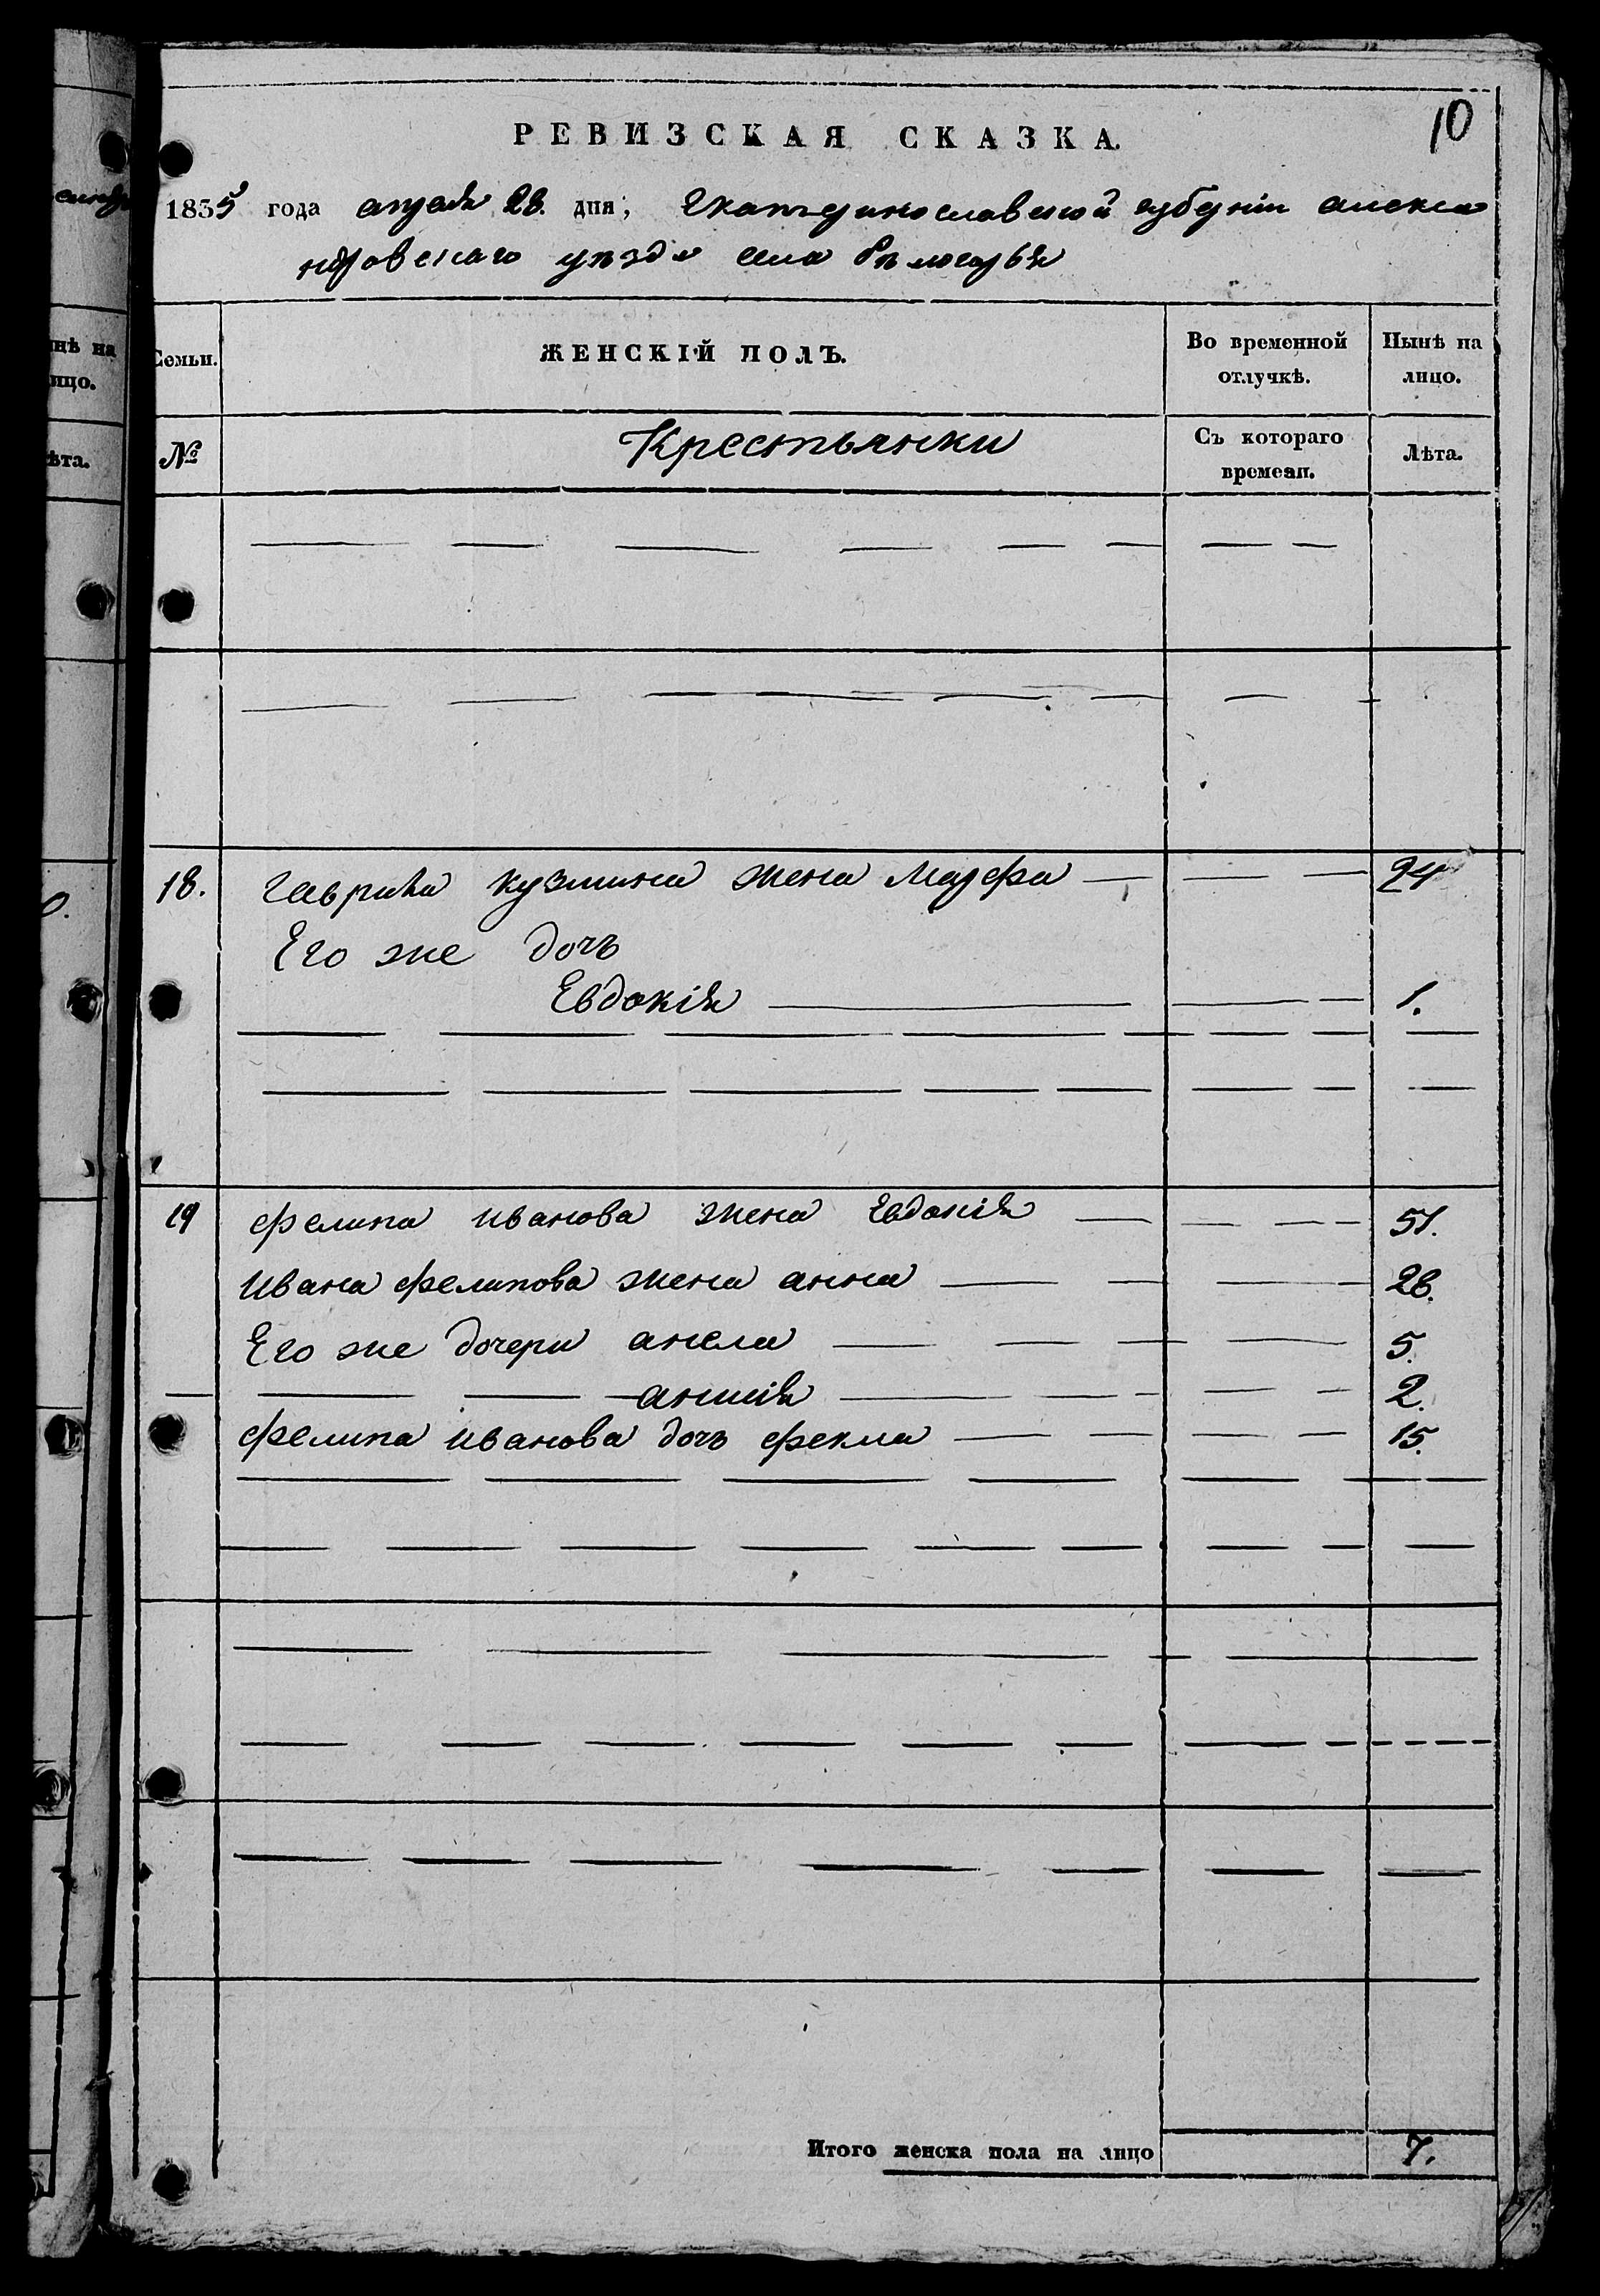 10
РЕВИЗСКАЯ СКАЗКА.
1835 года апреля 28. дня, Екатеринославской губернiи алекса
ндровскаго уѣзда села бѣлогорья
Семьи.
ЖЕНСКІЙ ПОЛЪ.
Во временной отлучкѣ.
Нынѣ на лицо.
№
Крестьянки
Съ котораго времени.
Лѣта.
18. гаврила кузмина жена Марфа 24
Его же дочь
Евдокія 1.
19 фелипа иванова жена Евдокія 51.
ивана фелипова жена анна 26.
Его же дочери 5.
2.
фелипа иванова дочь фекла 15.
Итого женска пола на лицо 7.